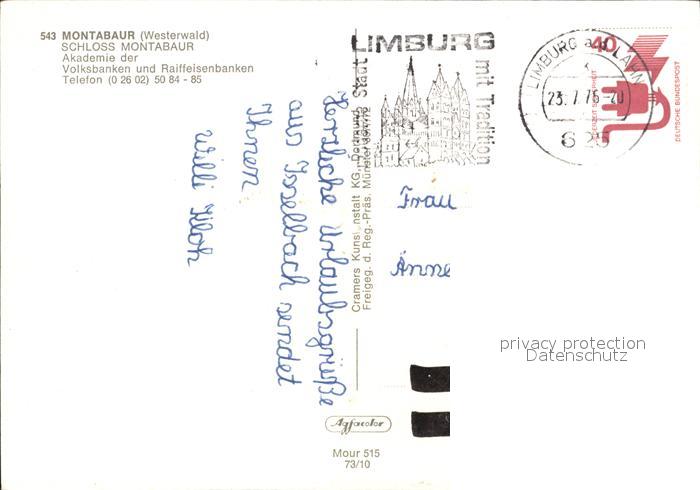 543 MONTABAUR (Westerwald)
SCHLOSS MONTABAUR
Akademie der
Volksbanken und Raiffeisenbanken
Telefon (0 26 02) 50 84 - 85
Herzliche Urlaubsgrüße
aus Isselbach sendet
Ihnen
Willi
Cramers Kunstanstalt KG., Dortmund
Freigeg. d. Reg.-Präs. Münster
LIMBURG
Stadt
mit Tradition
LIMBURG a.d. LAHN
23.7.76-20
625
40
DEUTSCHE BUNDESPOST
Frau
Änne
privacy protection
Datenschutz
Agfacolor
Mour 515
73/10